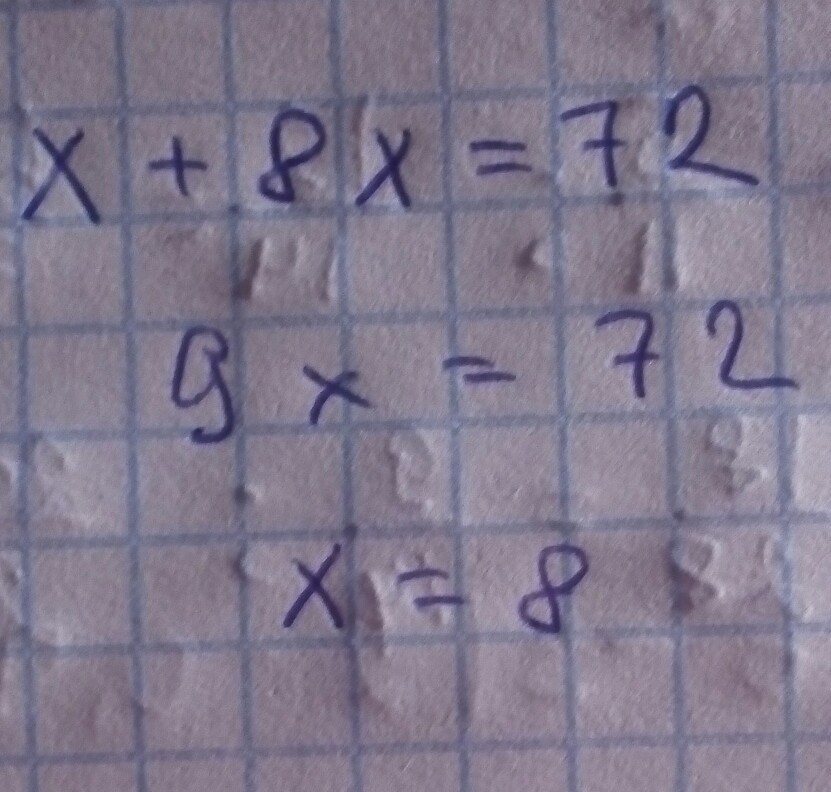 x + 8x = 72
9x = 72
x = 8